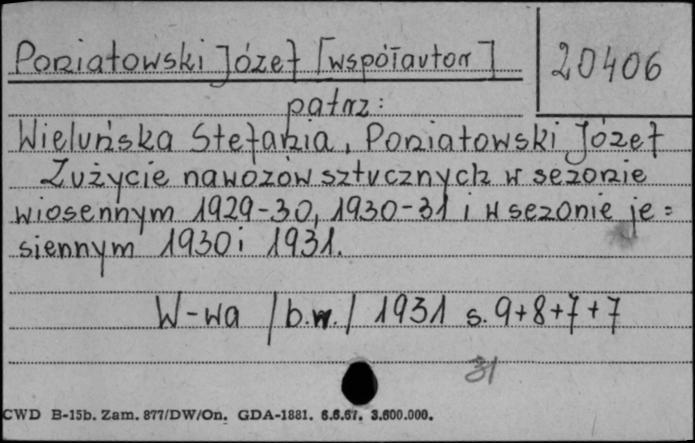 Poniatowski Józef [współautor]
20406
patrz:
Wieluńska Stefania, Poniatowski Józef
Zużycie nawozów sztucznych w sezonie
wiosennym 1929-30, 1930-31 i w sezonie je=
siennym 1930 i 1931.
W-wa /b.w./ 1931 s. 9+8+7+7
31
CWD B-15b. Zam. 877/DW/On. GDA-1881. 6.6.67. 3.600.000.